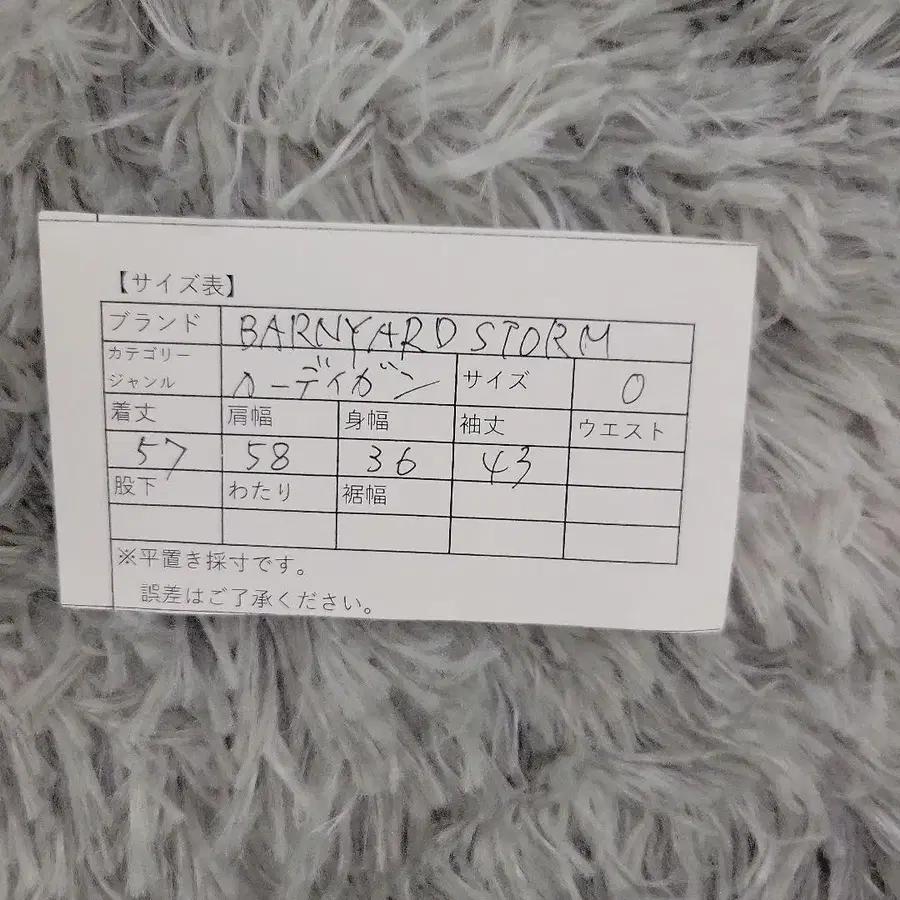 【サイズ表】
ブランド BARNYARD STORM
カテゴリー
ジャンル カーディガン サイズ 0
着丈 肩幅 身幅 袖丈 ウエスト
57 58 36 43
股下 わたり 裾幅
※平置き採寸です。
誤差はご了承ください。